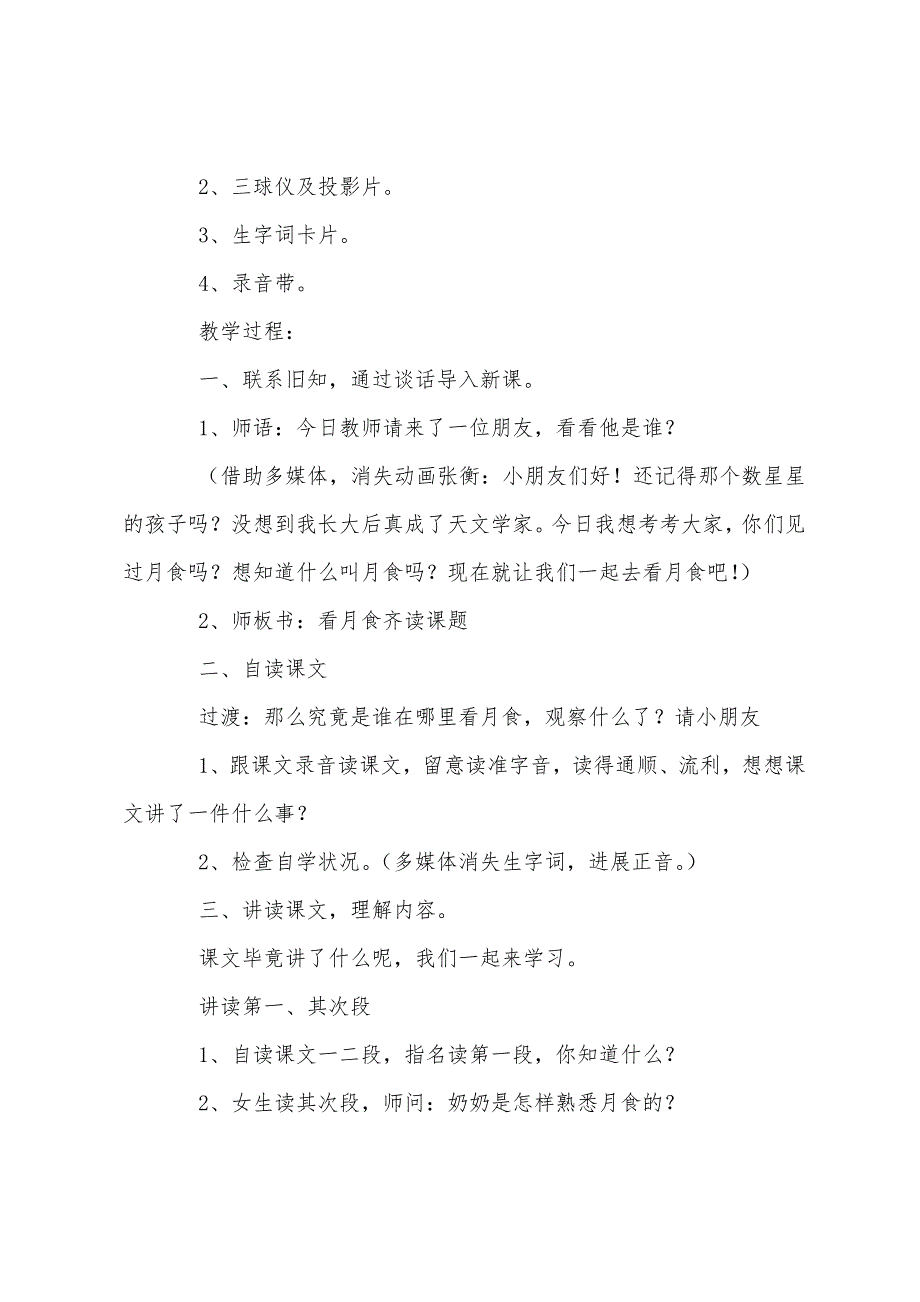 2、三球仪及投影片。
3、生字词卡片。
4、录音带。
教学过程：
一、联系旧知，通过谈话导入新课。
1、师语：今日教师请来了一位朋友，看看他是谁？
（借助多媒体，消失动画张衡：小朋友们好！还记得那个数星星
的孩子吗？没想到我长大后真成了天文学家。今日我想考考大家，你们见
过月食吗？想知道什么叫月食吗？现在就让我们一起去看月食吧！）
2、师板书：看月食齐读课题
二、自读课文
过渡：那么究竟是谁在哪里看月食，观察什么了？请小朋友
1、跟课文录音读课文，留意读准字音，读得通顺、流利，想想课
文讲了一件什么事？
2、检查自学状况。（多媒体消失生字词，进展正音。）
三、讲读课文，理解内容。
课文毕竟讲了什么呢，我们一起来学习。
讲读第一、其次段
1、自读课文一二段，指名读第一段，你知道什么？
2、女生读其次段，师问：奶奶是怎样熟悉月食的？